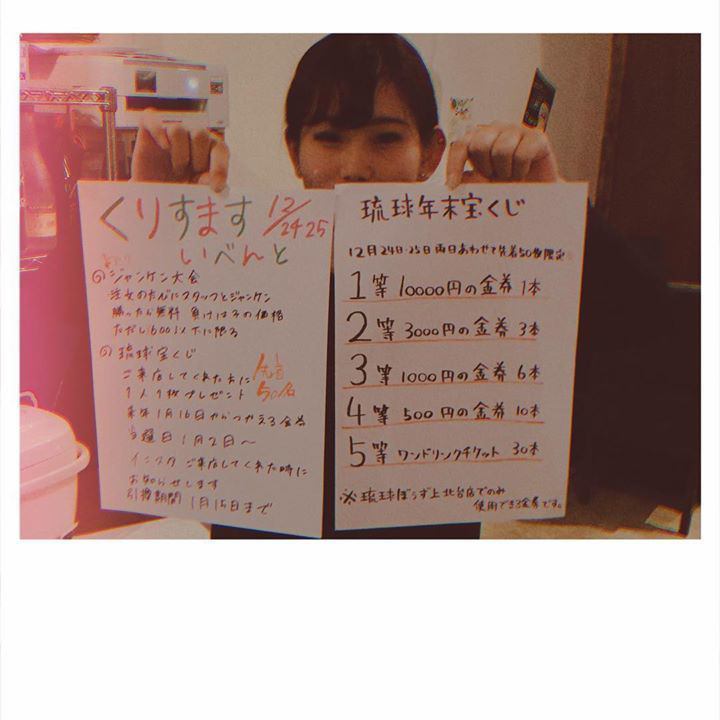 くりすます 12/24 25
いべんと
◎ジャンケン大会
注文のたびにスタッフとジャンケン
勝ったら無料 負けはその価格
ただし600以下に限る
◎琉球宝くじ
ご来店してくれた方に 先着
1人1枚プレゼント 50名
来年1月16日からつかえる金券
当選日1月2日〜
インスタ ご来店してくれた時に
お知らせします
引換期間 1月15日まで
琉球年末宝くじ
12月24日・25日両日あわせて先着50枚限定
1等 10000円の金券 1本
2等 3000円の金券 3本
3等 1000円の金券 6本
4等 500円の金券 10本
5等 ワンドリンクチケット 30本
※琉球ぼうず上北台店でのみ
使用できる金券です。